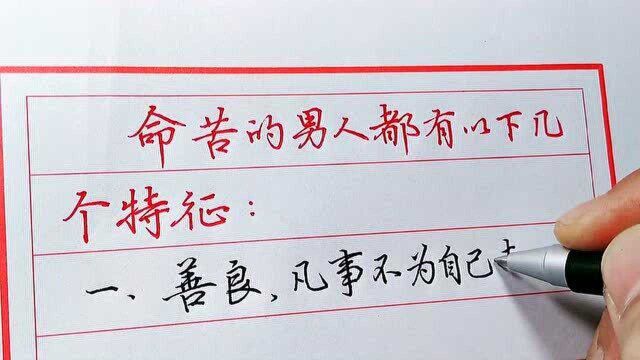 命苦的男人都有以下几
个特征：
一、善良，凡事不为自己